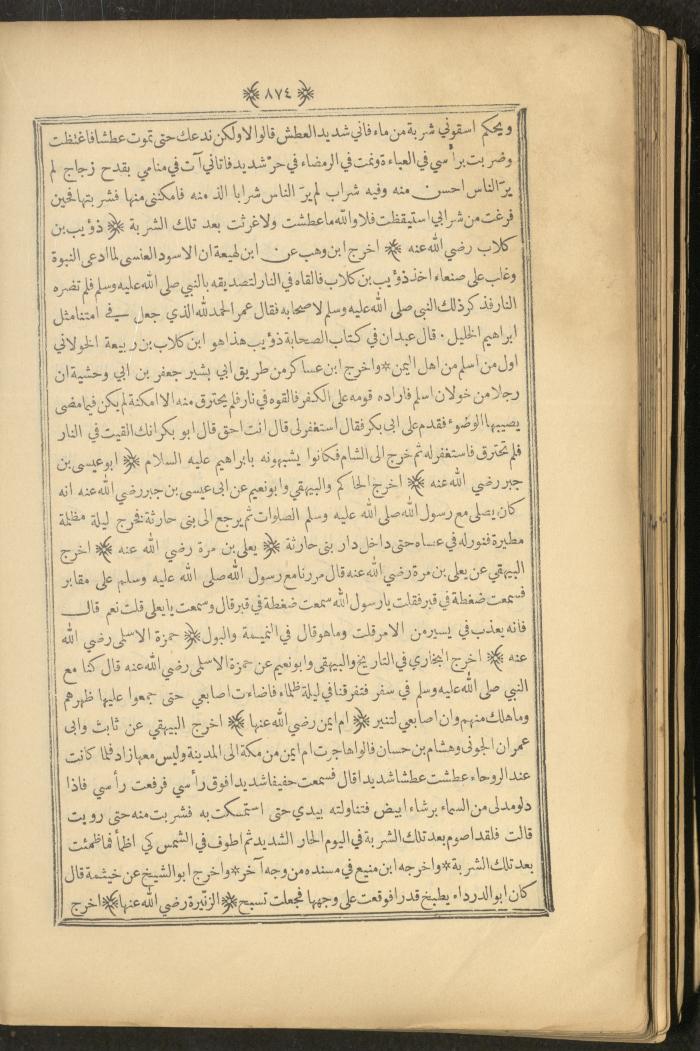 ﴿ ٨٧٤ ﴾
ويحكم اسقوني شربة من ماء فاني شديد العطش قالوا لا ولكن ندعك حتى تموت عطشا فاغتظت
وضربت برأسي في العباءة ونمت في الرمضاء في حر شديد فاتاني آت في منامي بقدح زجاج لم
يرَ الناس احسن منه وفيه شراب لم يرَ الناس شرابا الذ منه فامكنني منها فشربتها فحين
فرغت من شرابي استيقظت فلا والله ما عطشت ولا غرثت بعد تلك الشربة ﴿ ذؤيب بن
كلاب رضي الله عنه ﴾ اخرج ابن وهب عن ابن لهيعة ان الاسود العنسي لما ادعى النبوة
وغلب على صنعاء اخذ ذؤيب بن كلاب فالقاه في النار لتصديقه بالنبي صلى الله عليه وسلم فلم تضره
النار فذكر ذلك النبي صلى الله عليه وسلم لاصحابه فقال عمر الحمد لله الذي جعل في امتنا مثل
ابراهيم الخليل . قال عبدان في كتاب الصحابة ذؤيب هذا هو ابن كلاب بن ربيعة الخولاني
اول من اسلم من اهل اليمن * واخرج ابن عساكر من طريق ابي بشير جعفر بن ابي وحشية ان
رجلا من خولان اسلم فاراده قومه على الكفر فالقوه في نار فلم يحترق منه الا امكنة لم يكن فيما مضى
يصيبها الوضوء فقدم على ابي بكر فقال استغفر لي قال انت احق قال ابو بكر انك القيت في النار
فلم تحترق فاستغفر له ثم خرج الى الشام فكانوا يشبهونه بابراهيم عليه السلام ﴿ ابو عيسى بن
جبر رضي الله عنه ﴾ اخرج الحاكم والبيهقي وابو نعيم عن ابي عيسى بن جبر رضي الله عنه انه
كان يصلي مع رسول الله صلى الله عليه وسلم الصلوات ثم يرجع الى بني حارثة فخرج ليلة مظلمة
مطيرة فنور له في عصاه حتى داخل دار بني حارثة ﴿ يعلى بن مرة رضي الله عنه ﴾ اخرج
البيهقي عن يعلى بن مرة رضي الله عنه قال مررنا مع رسول الله صلى الله عليه وسلم على مقابر
فسمعت ضغطة في قبر فقلت يا رسول الله سمعت ضغطة في قبر قال وسمعت يا يعلى قلت نعم قال
فانه يعذب في يسير من الامر قلت وما هو قال في النميمة والبول ﴿ حمزة الاسلمي رضي الله
عنه ﴾ اخرج البخاري في التاريخ والبيهقي وابو نعيم عن حمزة الاسلمي رضي الله عنه قال كنا مع
النبي صلى الله عليه وسلم في سفر فتفرقنا في ليلة ظلماء فاضاءت اصابعي حتى جمعوا عليها ظهرهم
وما هلك منهم وان اصابعي لتنير ﴿ ام ايمن رضي الله عنها ﴾ اخرج البيهقي عن ثابت وابي
عمران الجوني وهشام بن حسان قالوا هاجرت ام ايمن من مكة الى المدينة وليس معها زاد فلما كانت
عند الروحاء عطشت عطشا شديدا قال فسمعت حفيفا شديدا فوق رأسي فرفعت رأسي فاذا
دلو مدلى من السماء برشاء ابيض فتناولته بيدي حتى استمسكت به فشربت منه حتى رويت
قالت فلقد اصوم بعد تلك الشربة في اليوم الحار الشديد ثم اطوف في الشمس كي اظمأ فما ظمئت
بعد تلك الشربة * واخرجه ابن منيع في مسنده من وجه آخر * واخرج ابو الشيخ عن خيثمة قال
كان ابو الدرداء يطبخ قدرا فوقعت على وجهها فجعلت تسبح ﴿ الزنيرة رضي الله عنها ﴾ اخرج